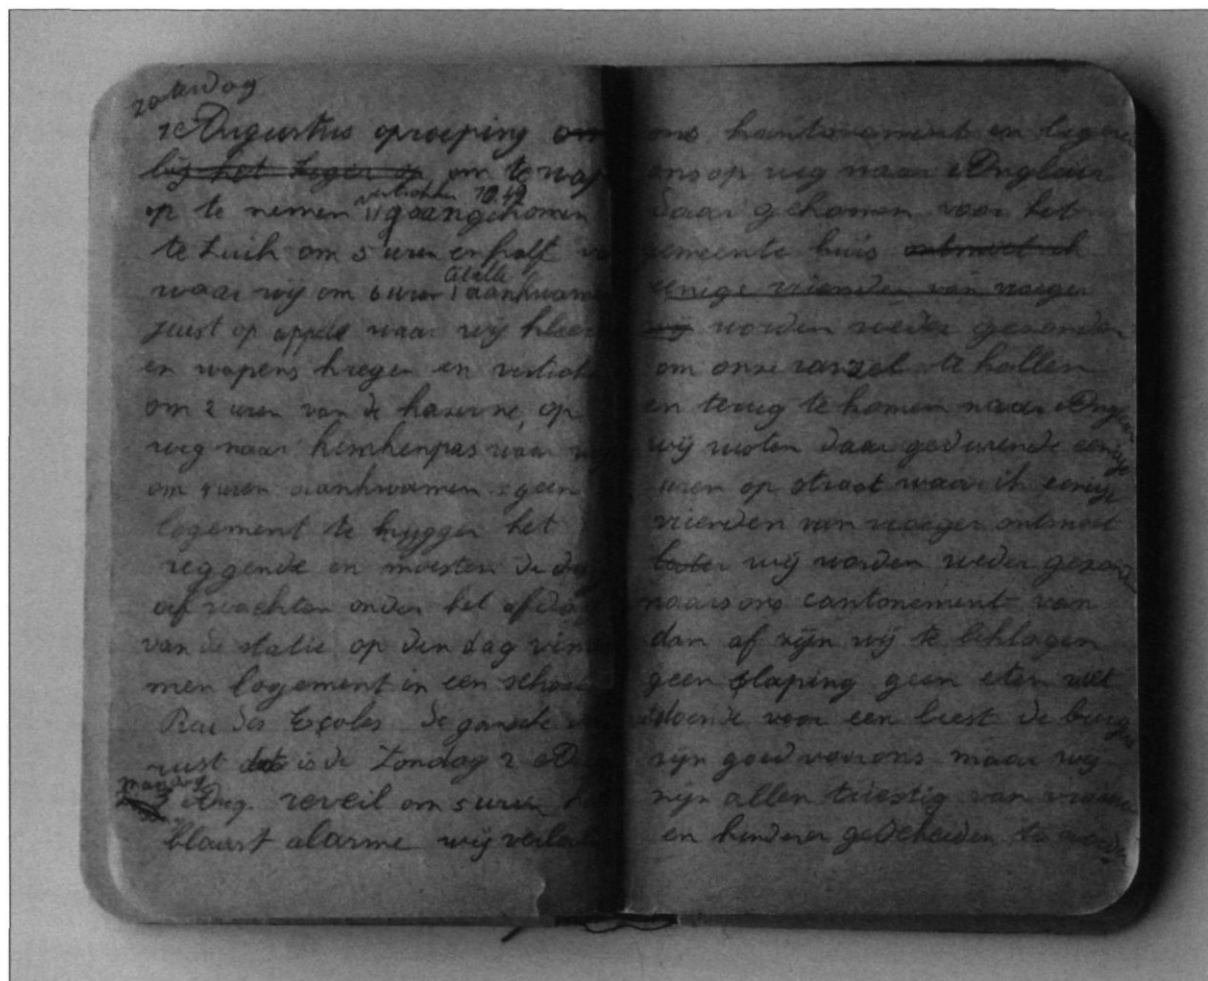 zaterdag
1e Augustus oproeping om
bij het leger op om te wap
op te nemen vertrokken 10.49 aangekomen
te Luik om 5 uren en half
waar wij om 6 uren aankwamen
juist op appels waar wij kleer
en wapens kregen en vertrok
om 2 uren van de kaserne, op
weg naar kimkempas waar wij
om 4 uren aankwamen geen
logement te krijgger het
reggende en moesten de dag
af wachten onder het afdag
van de statie op den dag vind
men logement in een school
Rue des Ecoles de gansche
rust dat is de Zondag 2 Aug
maandag
3 Aug. reveil om 5 uren
blaast alarme wij verlat
ons kantonament en
ons op weg naar Angleur
daar gekomen voor het
gemeente huis ontmoet ik
eenige vrienden van vroeger
wij worden weder gezonden
om onze ranzel te hallen
en terug te komen naar Angleur
wij rusten daar gedurende eenige
uren op straat waar ik eenige
vrienden van vroeger ontmoet
later wij worden weder gezonde
naar ons cantonement van
dan af zijn wij te beklagen
geen slaping geen eten
voor een beest de burgers
zijn goed voor ons maar wij
zijn allen triestig van vrouw
en kinderen gescheiden te worden